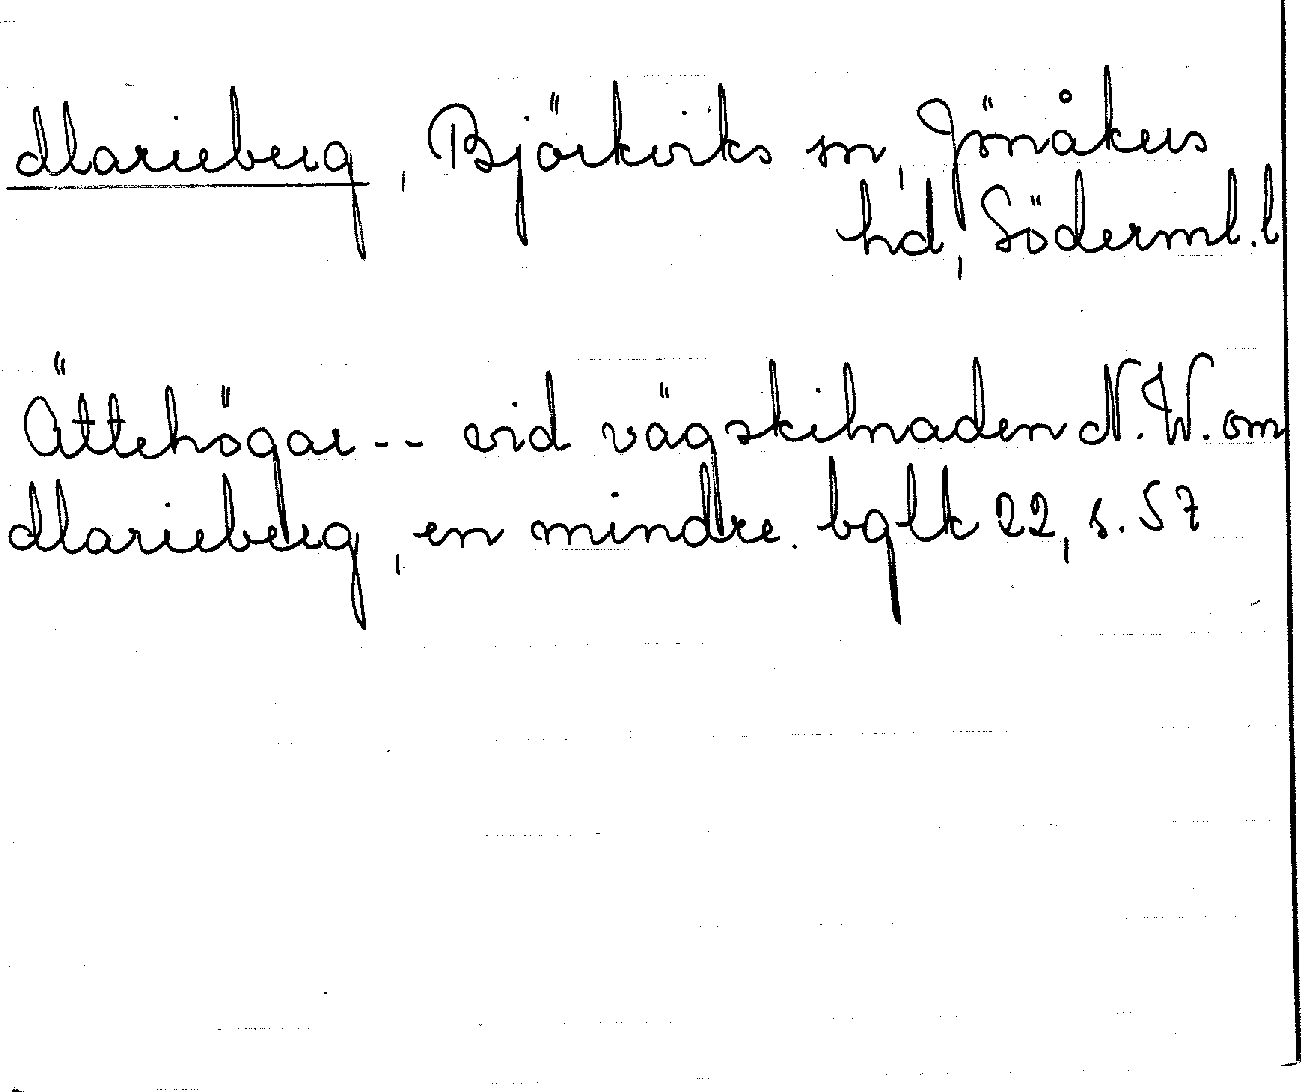 Marieberg, Björkviks sn, Jönåkers
hd, Söderml. l
Ättehögar -- vid vägskilnaden N.W. om
Marieberg, en mindre. bglk 22, s. 57